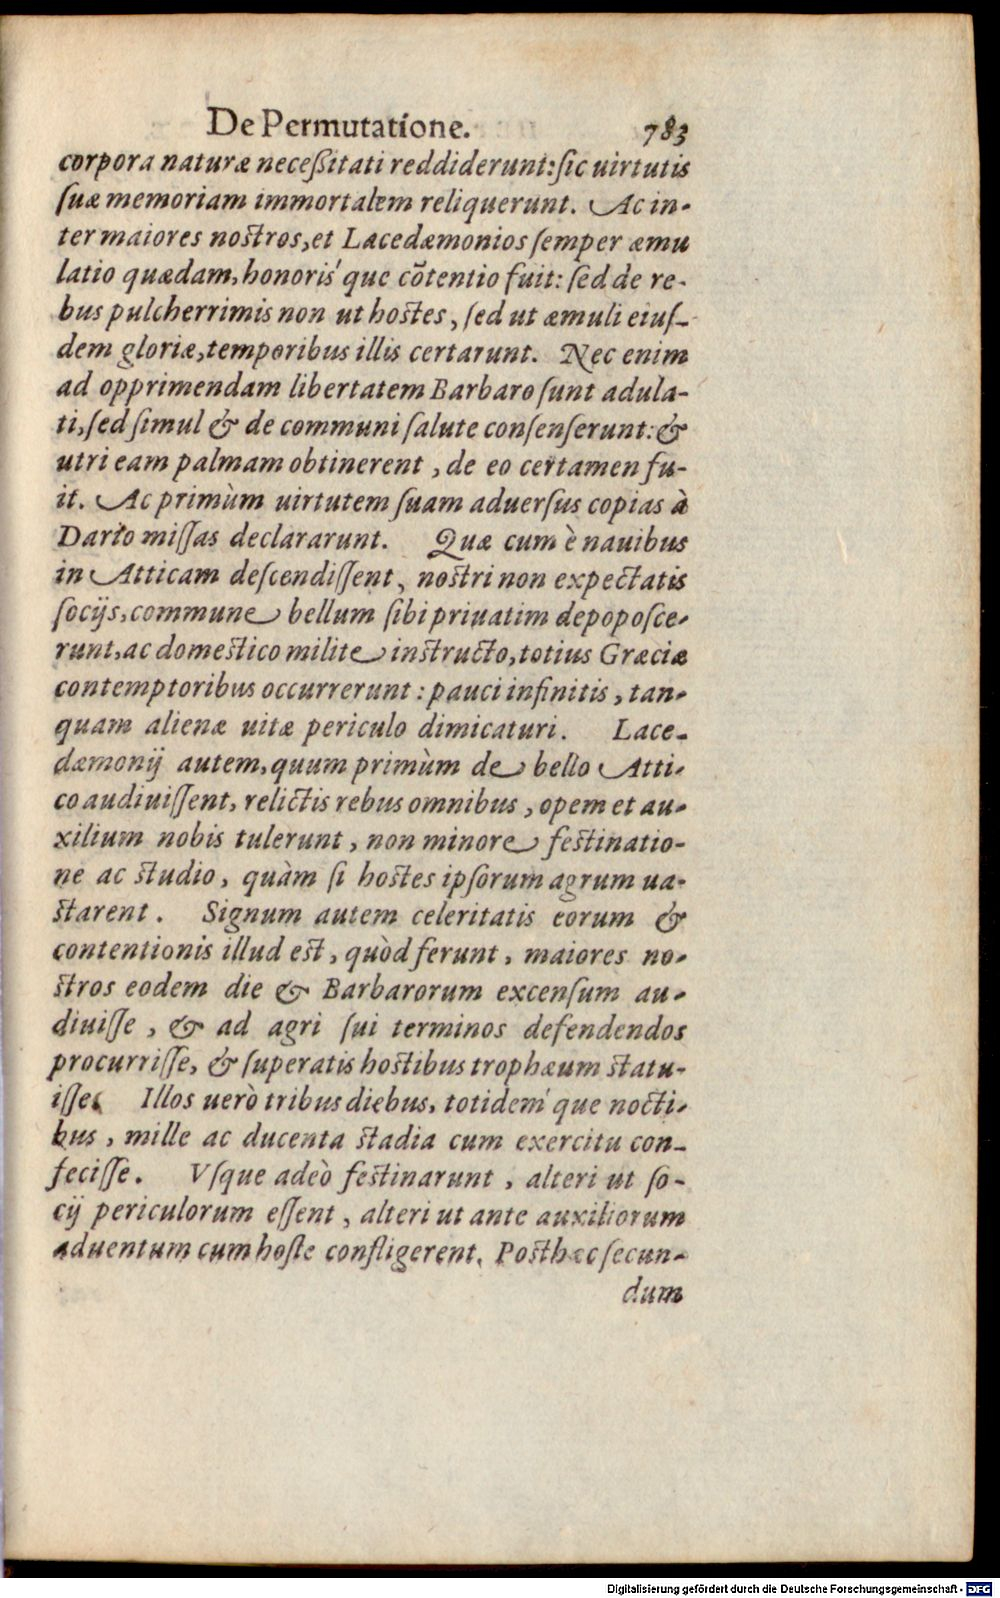 De Permutatione. 783
corpora naturæ neceßitati reddiderunt: ſic uirtutis
ſuæ memoriam immortalem reliquerunt. Ac in-
ter maiores noſtros, et Lacedæmonios ſemper æmu
latio quædam, honoris´que cõtentio fuit: ſed de re-
bus pulcherrimis non ut hoſtes, ſed ut æmuli eiuſ-
dem gloriæ, temporibus illis certarunt. Nec enim
ad opprimendam libertatem Barbaro ſunt adula-
ti, ſed ſimul & de communi ſalute conſenſerunt: &
utri eam palmam obtinerent, de eo certamen fu-
it. Ac primùm uirtutem ſuam aduerſus copias à
Dario miſſas declararunt. Quæ cum è nauibus
in Atticam deſcendiſſent, noſtri non expectatis
ſocijs, commune bellum ſibi priuatim depopoſce-
runt, ac domeſtico milite inſtructo, totius Græciæ
contemptoribus occurrerunt: pauci infinitis, tan-
quam alienæ uitæ periculo dimicaturi. Lace-
dæmonij autem, quum primùm de bello Atti-
co audiuiſſent, relictis rebus omnibus, opem et au-
xilium nobis tulerunt, non minore feſtinatio-
ne ac ſtudio, quàm ſi hoſtes ipſorum agrum ua-
ſtarent. Signum autem celeritatis eorum &
contentionis illud eſt, quòd ferunt, maiores no-
ſtros eodem die & Barbarorum excenſum au-
diuiſſe, & ad agri ſui terminos defendendos
procurriſſe, & ſuperatis hoſtibus trophæum ſtatu-
iſſe. Illos uerò tribus diebus, totidem´que nocti-
bus, mille ac ducenta ſtadia cum exercitu con-
feciſſe. Vſque adeò feſtinarunt, alteri ut ſo-
cij periculorum eſſent, alteri ut ante auxiliorum
aduentum cum hoſte confligerent. Poſthæc ſecun-
dum
Digitalisierung gefördert durch die Deutsche Forschungsgemeinschaft - DFG